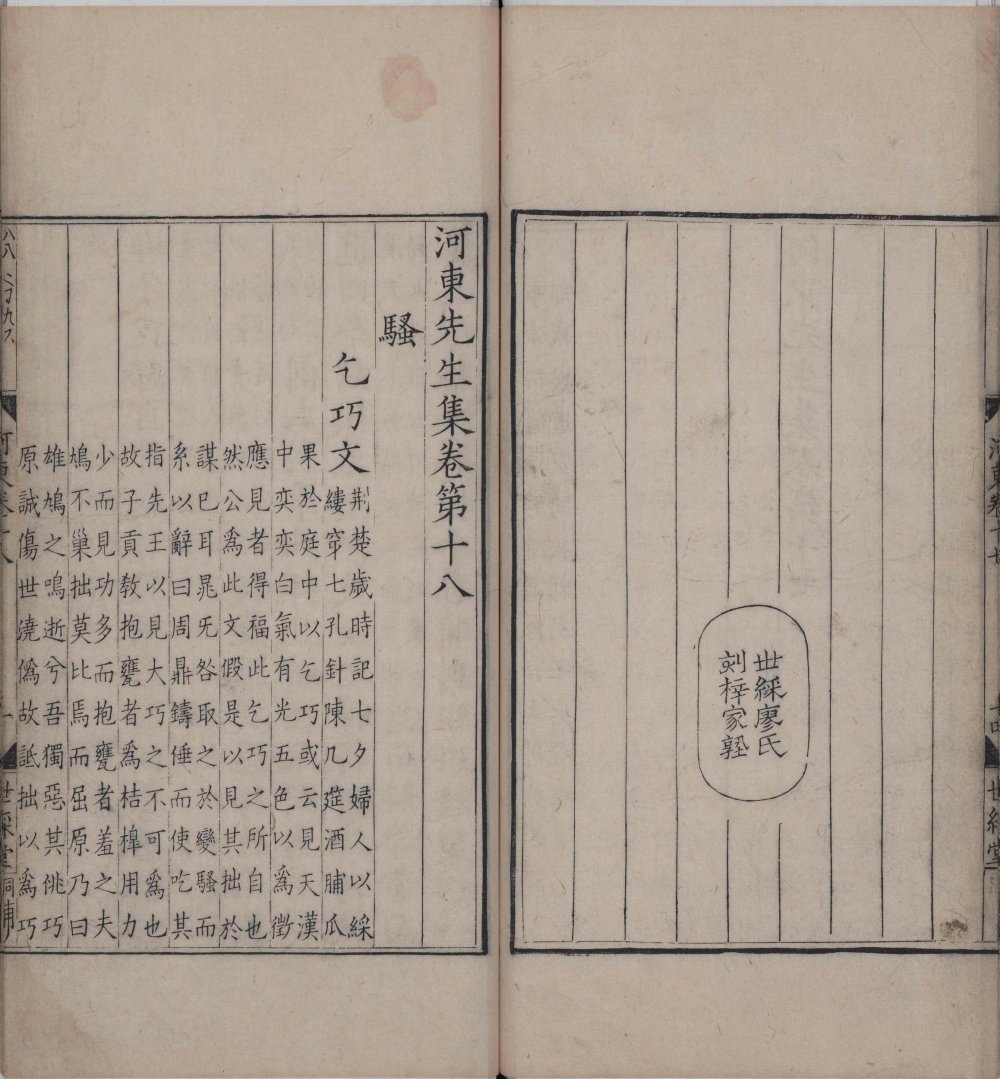 河東卷十七
世綵堂
世綵廖氏
刻梓家塾
河東先生集卷第十八
騷
乞巧文
荆楚歲時記七夕婦人以綵
縷穿七孔針陳几筵酒脯瓜
果於庭中以乞巧或云見天漢
中奕奕白氣有光五色以爲徵
應見者得福此乞巧之所自也
然公爲此文假是以見其拙於
謀已耳晁旡咎取之於變騷而
系以辭曰周鼎鑄倕而使吃其
指先王以見大巧之不可爲也
故子貢敎抱甕者爲桔橰用力
少而見功多而抱甕者羞之夫
鳩不巢拙莫比焉而屈原乃曰
雄鳩之鳴逝兮吾獨惡其佻巧
原誠傷世澆僞故詆拙以爲巧
河東卷十八
世綵堂